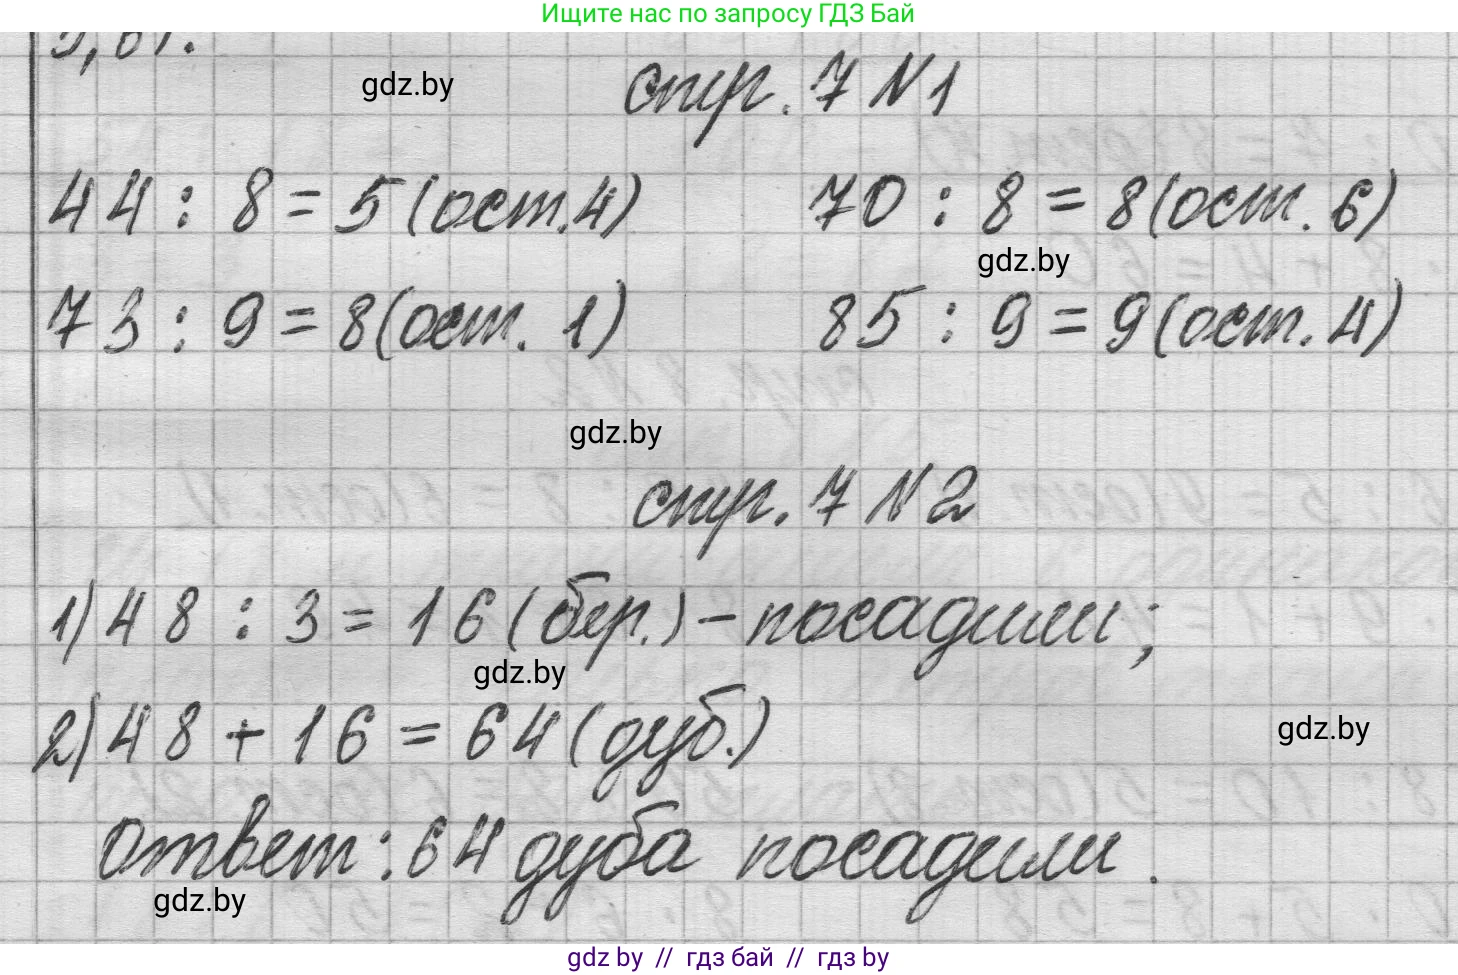 Ищите нас по запросу ГДЗ Бай
gdz.by
стр. 7 №1
44 : 8 = 5 (ост.4) 70 : 8 = 8 (ост. 6)
gdz.by
73 : 9 = 8 (ост. 1) 85 : 9 = 9 (ост. 4)
gdz.by
стр. 7 №2
1) 48 : 3 = 16 (бер.) – посадили;
gdz.by
2) 48 + 16 = 64 (дуб.)
gdz.by
ответ: 64 дуба посадили.
gdz.by
gdz by // гдз бай // гдз by